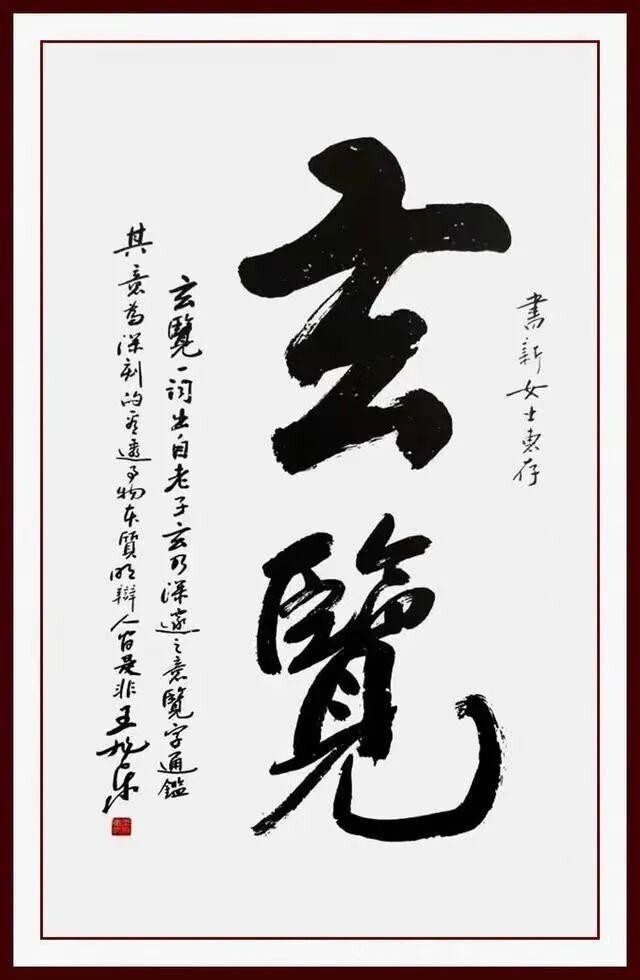 書新女士惠存
玄覽
玄覽一詞出自老子玄乃深邃之意覽字通鑑
其意為深刻的看透事物本質明辯人間是非王